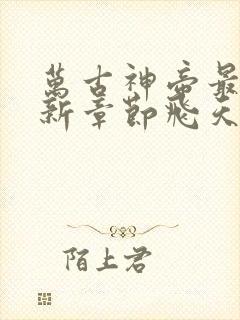 萬古神帝最
新章節飛天
陌上君